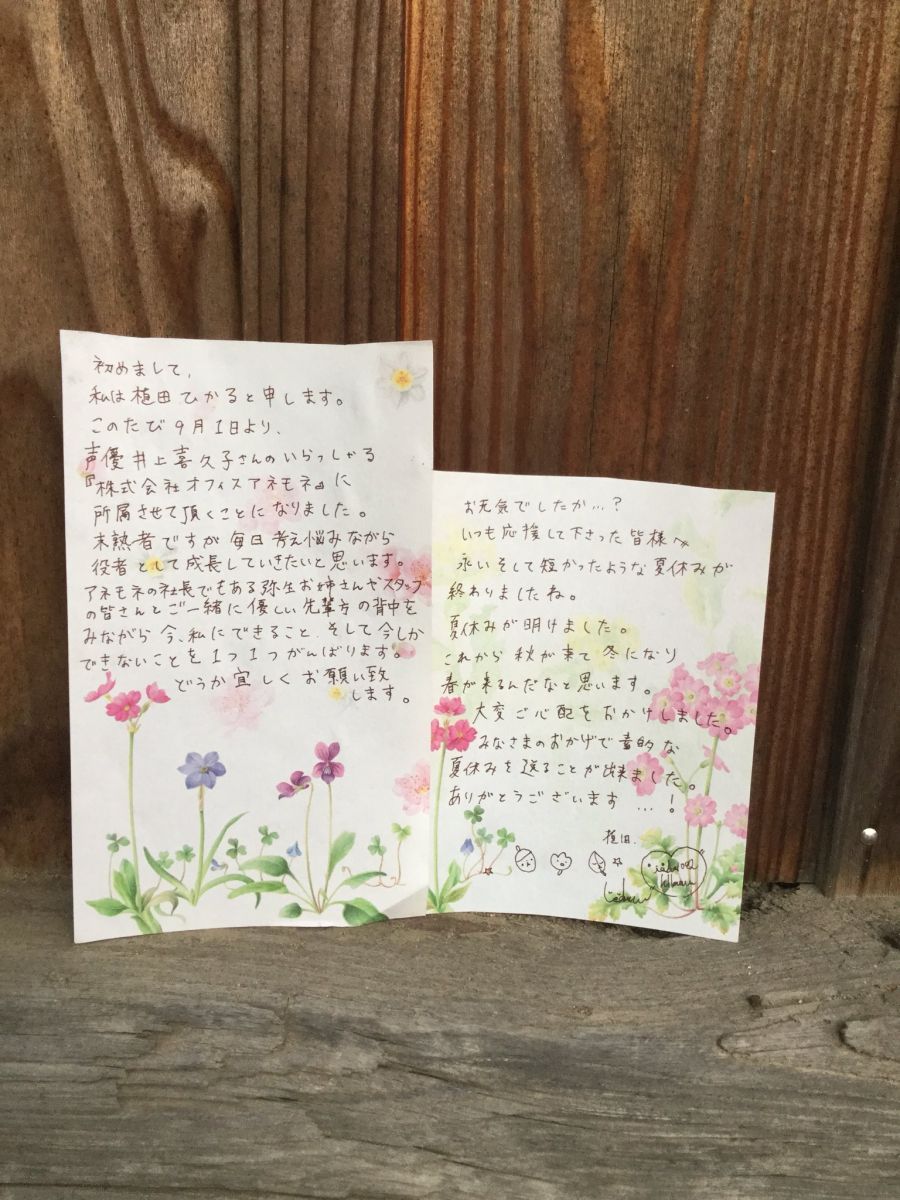 初めまして、
私は植田ひかると申します。
このたび9月1日より、
声優井上喜久子さんのいらっしゃる
『株式会社オフィスアネモネ』に
所属させて頂くことになりました。
未熟者ですが毎日考え悩みながら
役者として成長していきたいと思います。
アネモネの社長でもある弥生お姉さんやスタッフ
の皆さんとご一緒に優しい先輩方の背中を
みながら今、私にできること、そして今しか
できないことを1つ1つがんばります。
どうか宜しくお願い致
します。
お元気でしたか…?
いつも応援して下さった皆様へ
永いそして短かったような夏休みが
終わりましたね。
夏休みが明けました。
これから秋が来て冬になり
春が来るんだなと思います。
大変ご心配をおかけしました。
みなさまのおかげで素的な
夏休みを送ることが出来ました。
ありがとうございます…!
植田.